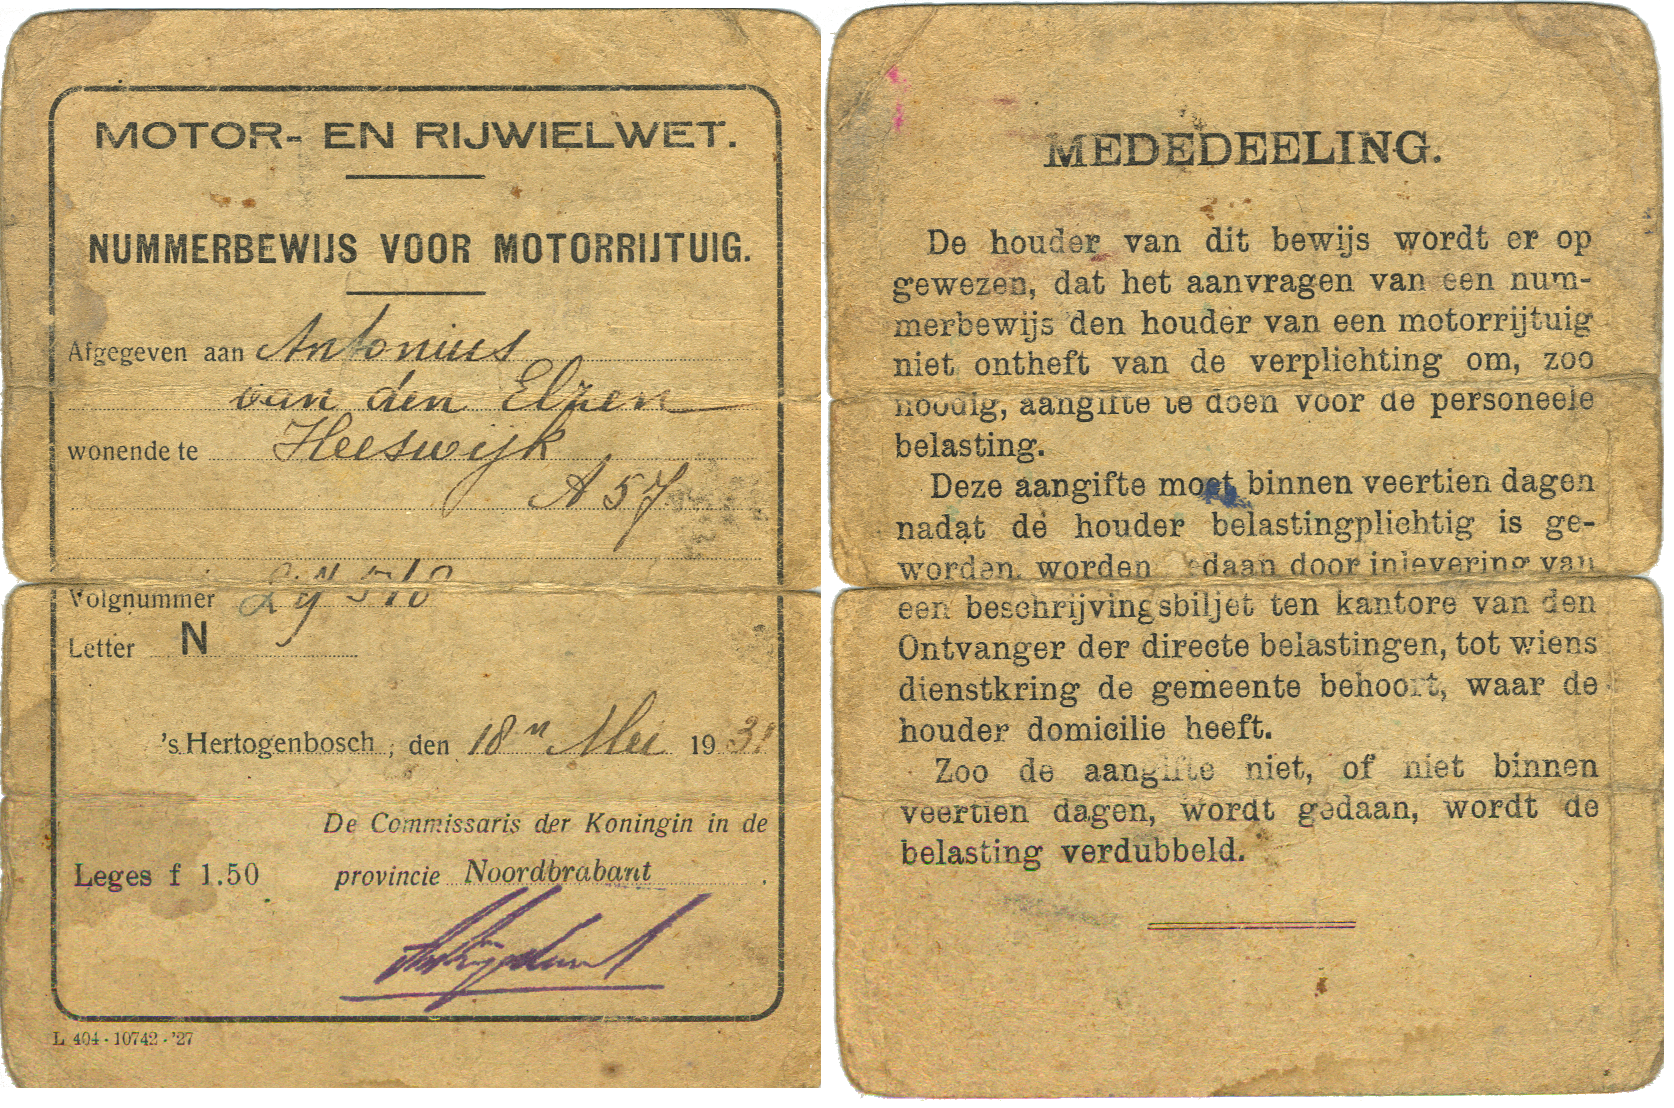 MOTOR- EN RIJWIELWET.
NUMMERBEWIJS VOOR MOTORRIJTUIG.
Afgegeven aan Antonius
van den Elzen
wonende te Heeswijk
A 57
Volgnummer
Letter N
's Hertogenbosch, den 18n Mei 193
De Commissaris der Koningin in de
Leges f 1.50 provincie Noordbrabant.
L 404 - 10742 - '27
MEDEDEELING.
De houder van dit bewijs wordt er op
gewezen, dat het aanvragen van een num-
merbewijs den houder van een motorrijtuig
niet ontheft van de verplichting om, zoo
noodig, aangifte te doen voor de personeele
belasting.
Deze aangifte moet binnen veertien dagen
nadat de houder belastingplichtig is ge-
worden, worden gedaan door inlevering van
een beschrijvingsbiljet ten kantore van den
Ontvanger der directe belastingen, tot wiens
dienstkring de gemeente behoort, waar de
houder domicilie heeft.
Zoo de aangifte niet, of niet binnen
veertien dagen, wordt gedaan, wordt de
belasting verdubbeld.